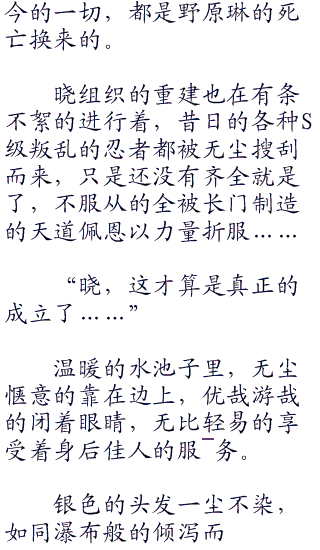 今的一切，都是野原琳的死
亡换来的。
晓组织的重建也在有条
不絮的进行着，昔日的各种S
级叛乱的忍者都被无尘搜刮
而来，只是还没有齐全就是
了，不服从的全被长门制造
的天道佩恩以力量折服……
“晓，这才算是真正的
成立了……”
温暖的水池子里，无尘
惬意的靠在边上，优哉游哉
的闭着眼睛，无比轻易的享
受着身后佳人的服¯务。
银色的头发一尘不染，
如同瀑布般的倾泻而